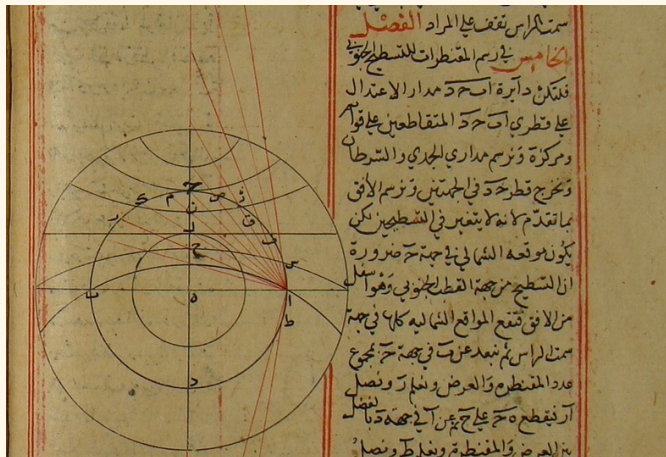 سمت الراس تقف على المراد الفصل
الخامس في رسم المقنطرات للتسطيح الجنوبي
فلتكن دايرة اب حد مدار الاعتدال
على قطري اب حد المتقاطعين على قوايم
ومركزه ه ونرسم مداري الجدي والسرطان
ونخرج قطر حد في الجهتين ونرسم الافق
بما تقدم لانه لا يتغير في التسطيحين لكن
يكون موقعه الشمالي في جهة ح ضرورة
ان التسطيح من جهة القطب الجنوبي وهو اسفل
من الافق فتقع المواقع الشماليه كلها في جهة
سمت الراس ثم نبعد عن ب في جهة ح بمجموع
عدد المقنطره والعرض ونعلم ر ونصل
ار فيقطع ه ح على ح ثم عن ا في جهة د بالفضل
بين العرض والمقنطرة ونعلم ط ونصل